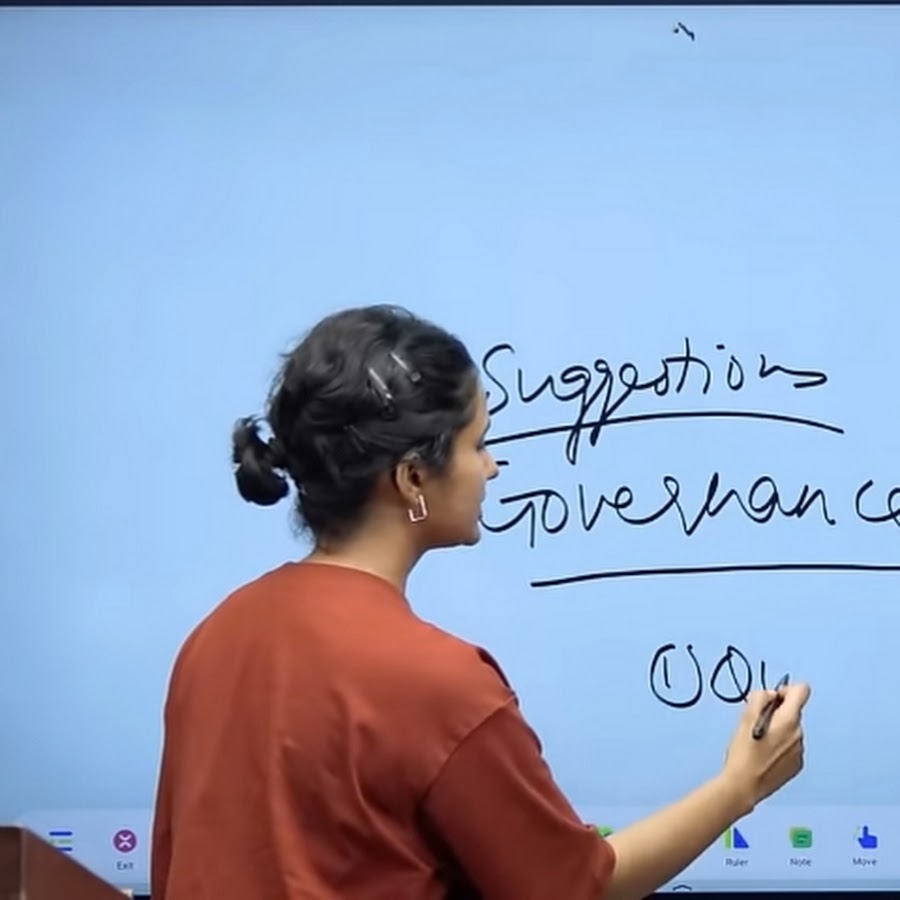 Suggestions
Governance
① Qu
Exit
Ruler
Note
Move